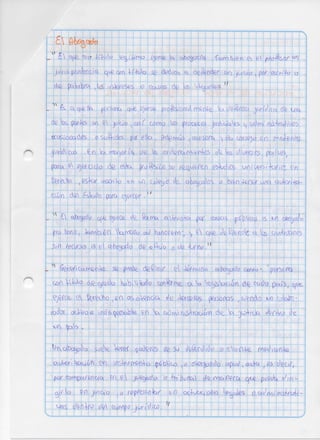 El Abogado
" El que con título legítimo ejerce la abogacía. También es el profesor en
jurisprudencia que con título se dedica a defender en juicio, por escrito o
de palabra, los intereses o causas de los litigantes "
" Es aquella persona que ejerce profesionalmente la defensa jurídica de una
de las partes en el juicio, así como los procesos judiciales y administrativos
ocasionados o sufridos por ella. Además, asesora y da consejo en materias
jurídicas. En la mayoría de los ordenamientos de los diversos países,
para el ejercicio de esta profesión se requieren estudios universitarios en
Derecho, estar inscrito en un Colegio de abogados o bien tener una autoriza-
ción del Estado para ejercer. "
" El abogado que ejerce de forma por causa pública es un abogado
pro bono, también llamado ad honorem, el que defiende a los ciudadanos
sin recurso es el abogado de oficio o de turno. "
" Genéricamente se puede definir el término abogado como: persona
con título de grado habilitado conforme a la legislación de cada país, que
ejerce el Derecho, en asistencia de terceras personas, siendo un colabo-
rador activo e indispensable en la administración de la justicia dentro de
un país.
Un abogado suele tener poderes de su defendido o cliente mediante
autorización en instrumento público, u otorgado apud acta, es decir,
por comparecencia en el juzgado o tribunal de manera que pueda diri-
girlo en juicio, o representarle en actuaciones legales o administrati-
vas dentro del campo jurídico. "